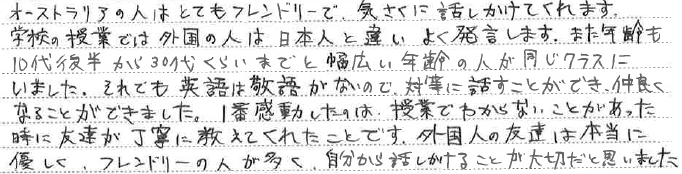 オーストラリアの人はとてもフレンドリーで、気さくに話しかけてくれます。
学校の授業では外国の人は日本人と違いよく発言します。また年齢も
10代後半から30代くらいまでと幅広い年齢の人が同じクラスに
いました。それでも英語は敬語がないので、対等に話すことができ、仲良く
なることができました。1番感動したのは、授業でわからないことがあった
時に友達が丁寧に教えてくれたことです。外国人の友達は本当に
優しく、フレンドリーの人が多く、自分から話しかけることが大切だと思いました